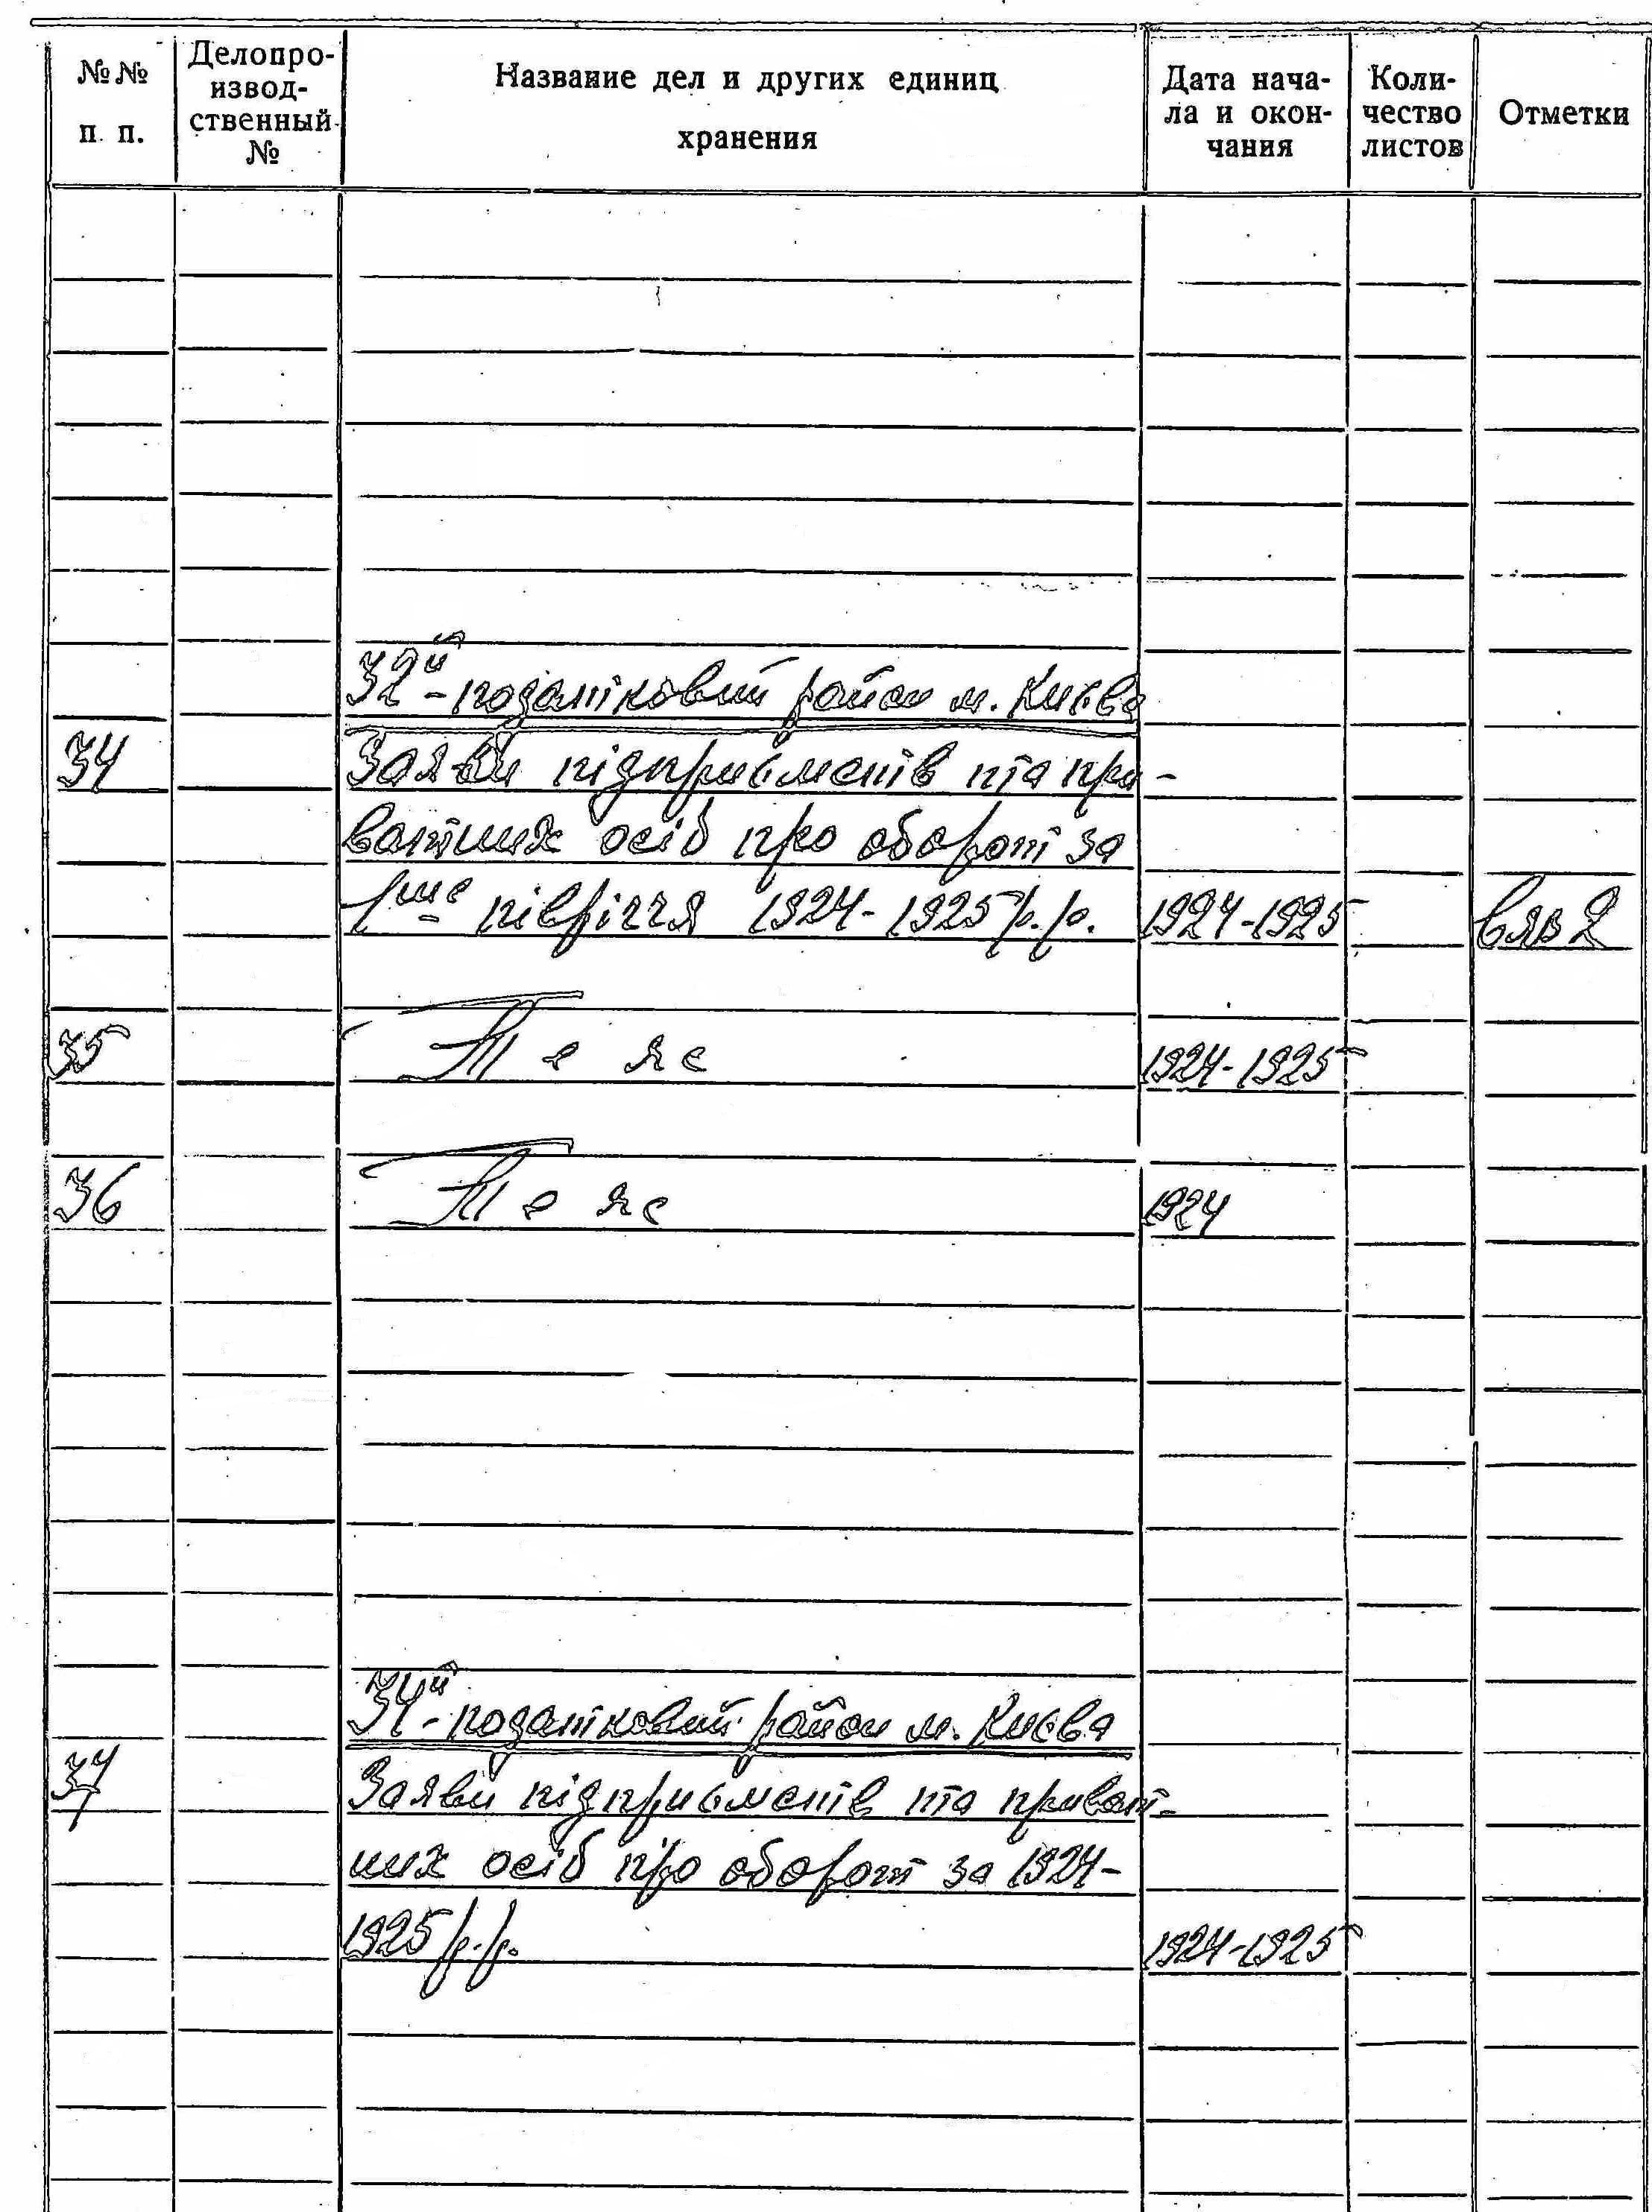 №№ п. п.
Делопро-
извод-
ственный
№
Название дел и других единиц
хранения
Дата нача-
ла и окон-
чания
Коли-
чество
листов
Отметки
32й - податковий район м. Києва
34 Заяви підприємств та при-
ватних осіб про оборот за
1ше півріччя 1924-1925 р.р. 1924-1925
35 Те же 1924-1925
36 Те же 1924
34й - податковий район м. Києва
37 Заяви підприємств та приват-
них осіб про оборот за 1924-
1925 р.р. 1924-1925